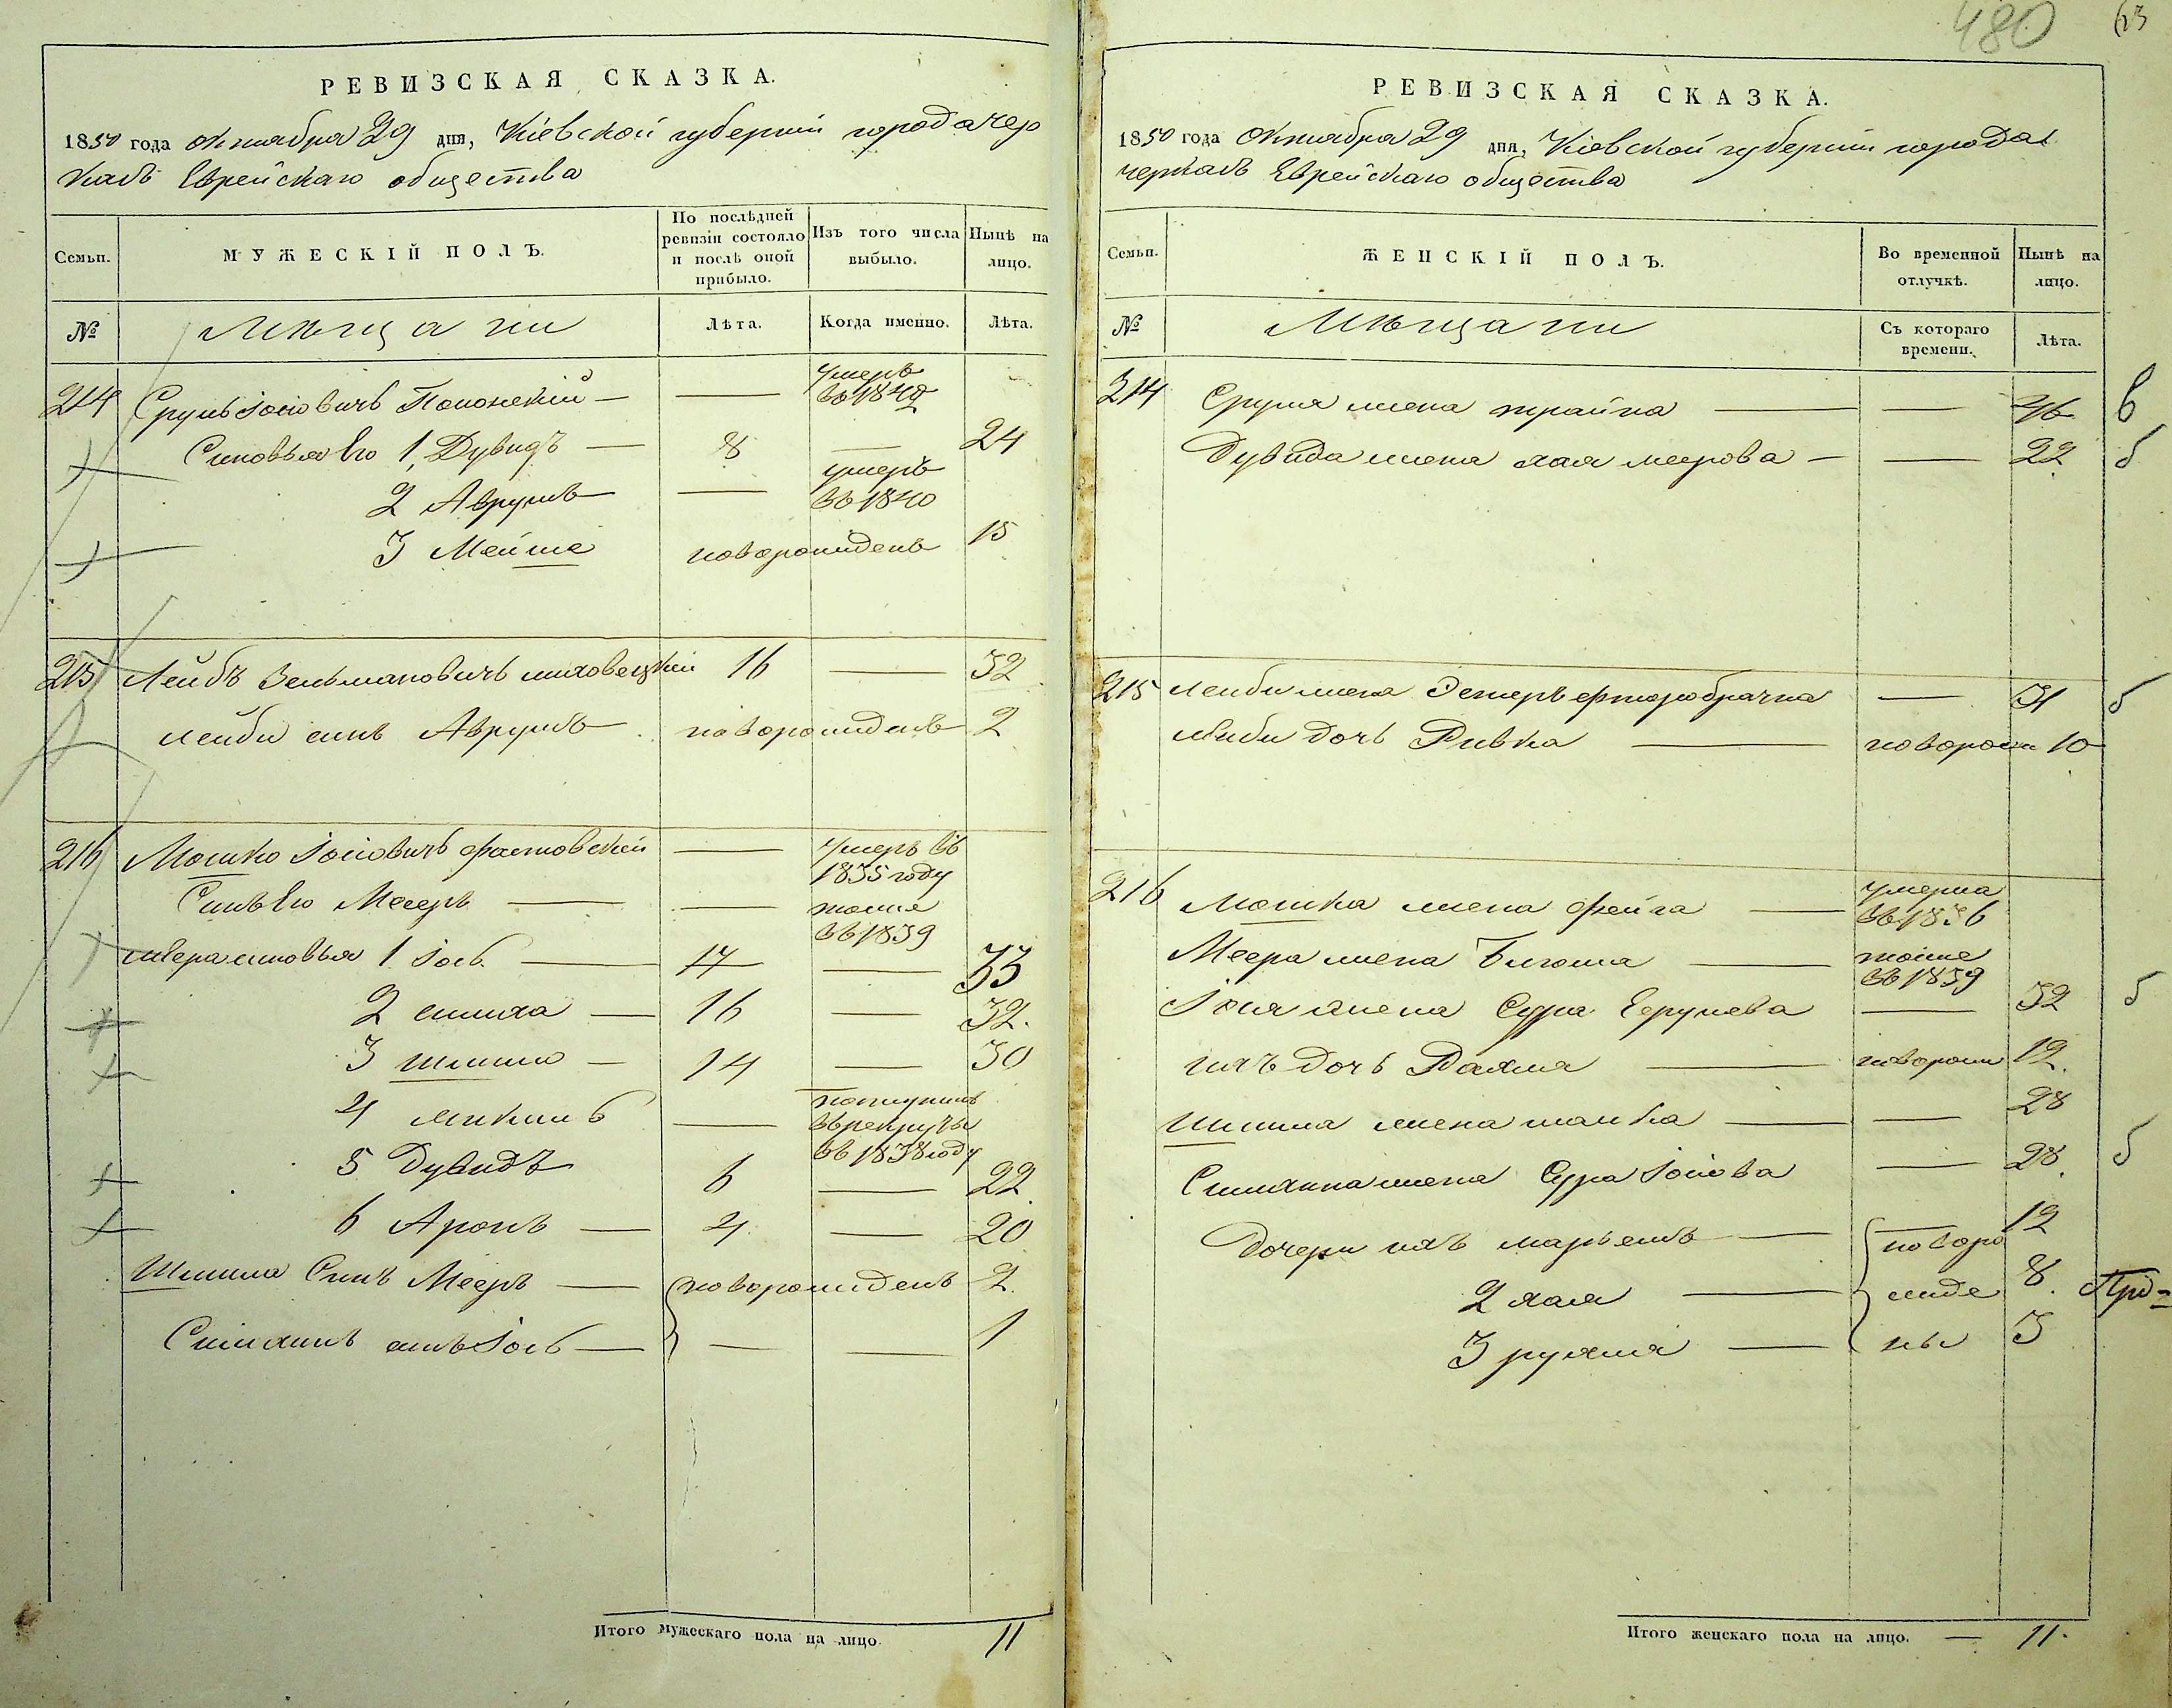 РЕВИЗСКАЯ СКАЗКА.
1850 года октября 29 дня, Кіевской губерніи города Чер
касъ Еврейскаго общества
Семьи. МУЖЕСКІЙ ПОЛЪ. По послѣдней ревизіи состояло и послѣ оной прибыло. Изъ того числа выбыло. Нынѣ на лицо.
№ Мѣщани Лѣта. Когда именно. Лѣта.
214 Срулъ Іосіовичъ — умеръ въ 1849
Сыновья Его 1, Дувидъ — 8 — 24
2 Аврумъ — — умеръ въ 1840
3 Мейше новорожденъ 15
215 Лейбъ Зельмановичъ 16 — 32
Лейби сынъ Аврумъ новорожденъ 2
216 Мошко Іосіовичъ Фастовскій — умеръ въ 1835 году
Сынъ Его Мееръ — — тоже въ 1839
Меера сыновья 1. Іось — 17 — 33
2 Симха — 16 — 32.
3 Шлиома — 14 — 30
4 — поступилъ в рекруты въ 1838 году
5 Дувидъ 6 — 22.
6 Аронъ — 4 — 20
Сынъ Мееръ — новорожденъ 2.
сынъ Іось — — — 1
Итого мужескаго пола на лицо. 11
480 63
РЕВИЗСКАЯ СКАЗКА.
1850 года Октября 29 дня, Кіевской губерніи города
Черкасъ Еврейскаго общества
Семьи. ЖЕНСКІЙ ПОЛЪ. Во временной отлучкѣ. Нынѣ на лицо.
№ Мѣщани Съ котораго времени. Лѣта.
214 Сруля жена — — 46 в
Дувида жена Хая Меерова — — 22 б
215 Лейби жена Эстеръ — 31 б
Лейби дочь Ривка — новорож 10
216 Мошка жена Фейга — умерла въ 1836
Меера жена — тоже въ 1839
Іося жена Сура — 32 б
ихъ дочь — новорож 12.
жена — — 28
жена Сура Іосіова — 28. б
Дочери ихъ — новоро 12
2 Хая — жде 8. Прі=
3 Рухля — ны 3
Итого женскаго пола на лицо. — 11.